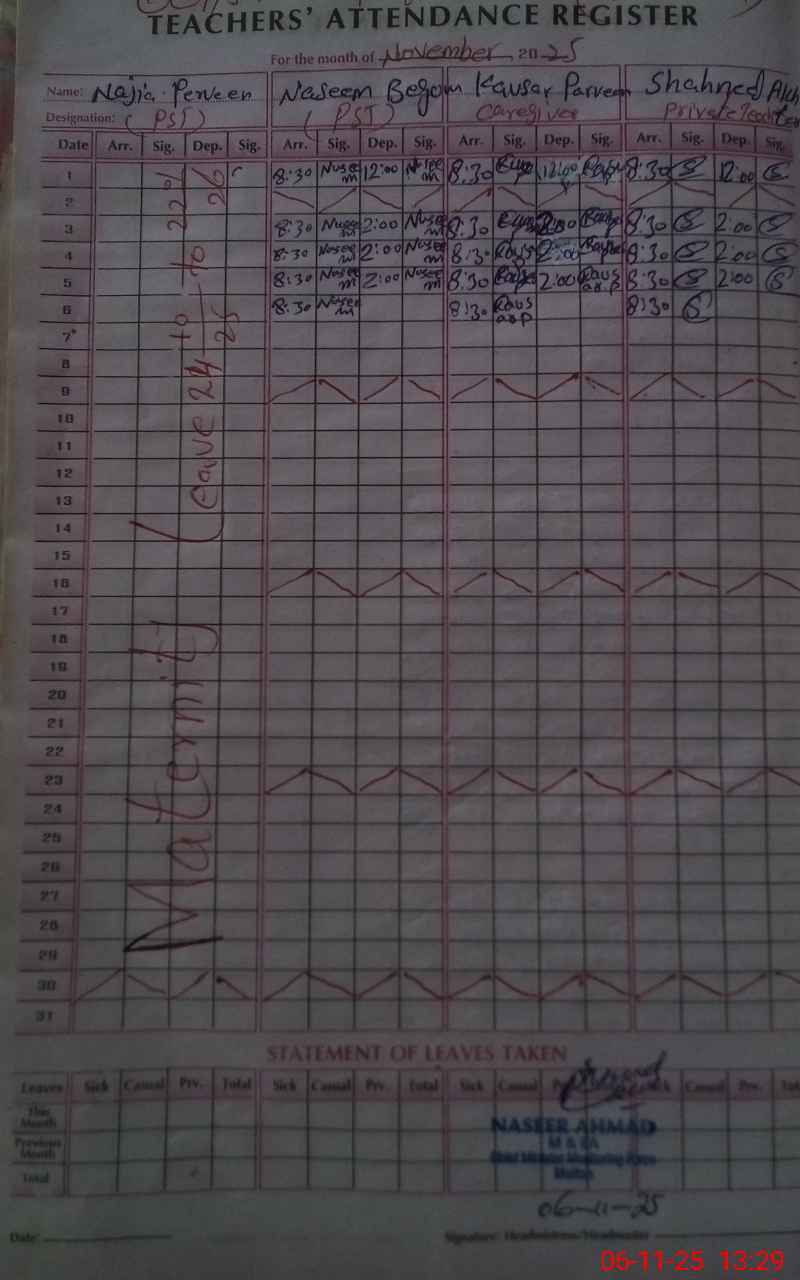 TEACHERS' ATTENDANCE REGISTER
For the month of November 2025
Name: Najia Perveen Naseem Begom Kausar Parveen Shahneed
Designation: (PST) (PST) Caregiver Private Teacher
Date Arr. Sig. Dep. Sig. Arr. Sig. Dep. Sig. Arr. Sig. Dep. Sig. Arr. Sig. Dep. Sig.
1 8:30 Naseem 12:00 Naseem 8:30 12:00 8:30 S 12:00 S
2
3 8:30 Naseem 2:00 Naseem 8:30 2:00 8:30 S 2:00 S
4 8:30 Naseem 2:00 Naseem 8:30 2:00 8:30 S 2:00 S
5 8:30 Naseem 2:00 Naseem 8:30 2:00 8:30 S 2:00 S
6 8:30 Naseem 8:30 8:30 S
7
8
9
10
11
12
13
14
15
16
17
18
19
20
21
22
23
24
25
26
27
28
29
30
31
Maternity Leave 24 10 25 to 22 26
STATEMENT OF LEAVES TAKEN
Leaves Sick Casual Prv. Total Sick Casual Prv. Total Sick Casual Casual Prv.
This Month
Previous Month
Total
NASEER AHMAD
M & EA
Multan
06-11-25
Date: Signature: Headmistress/Headmaster
06-11-25 13:29